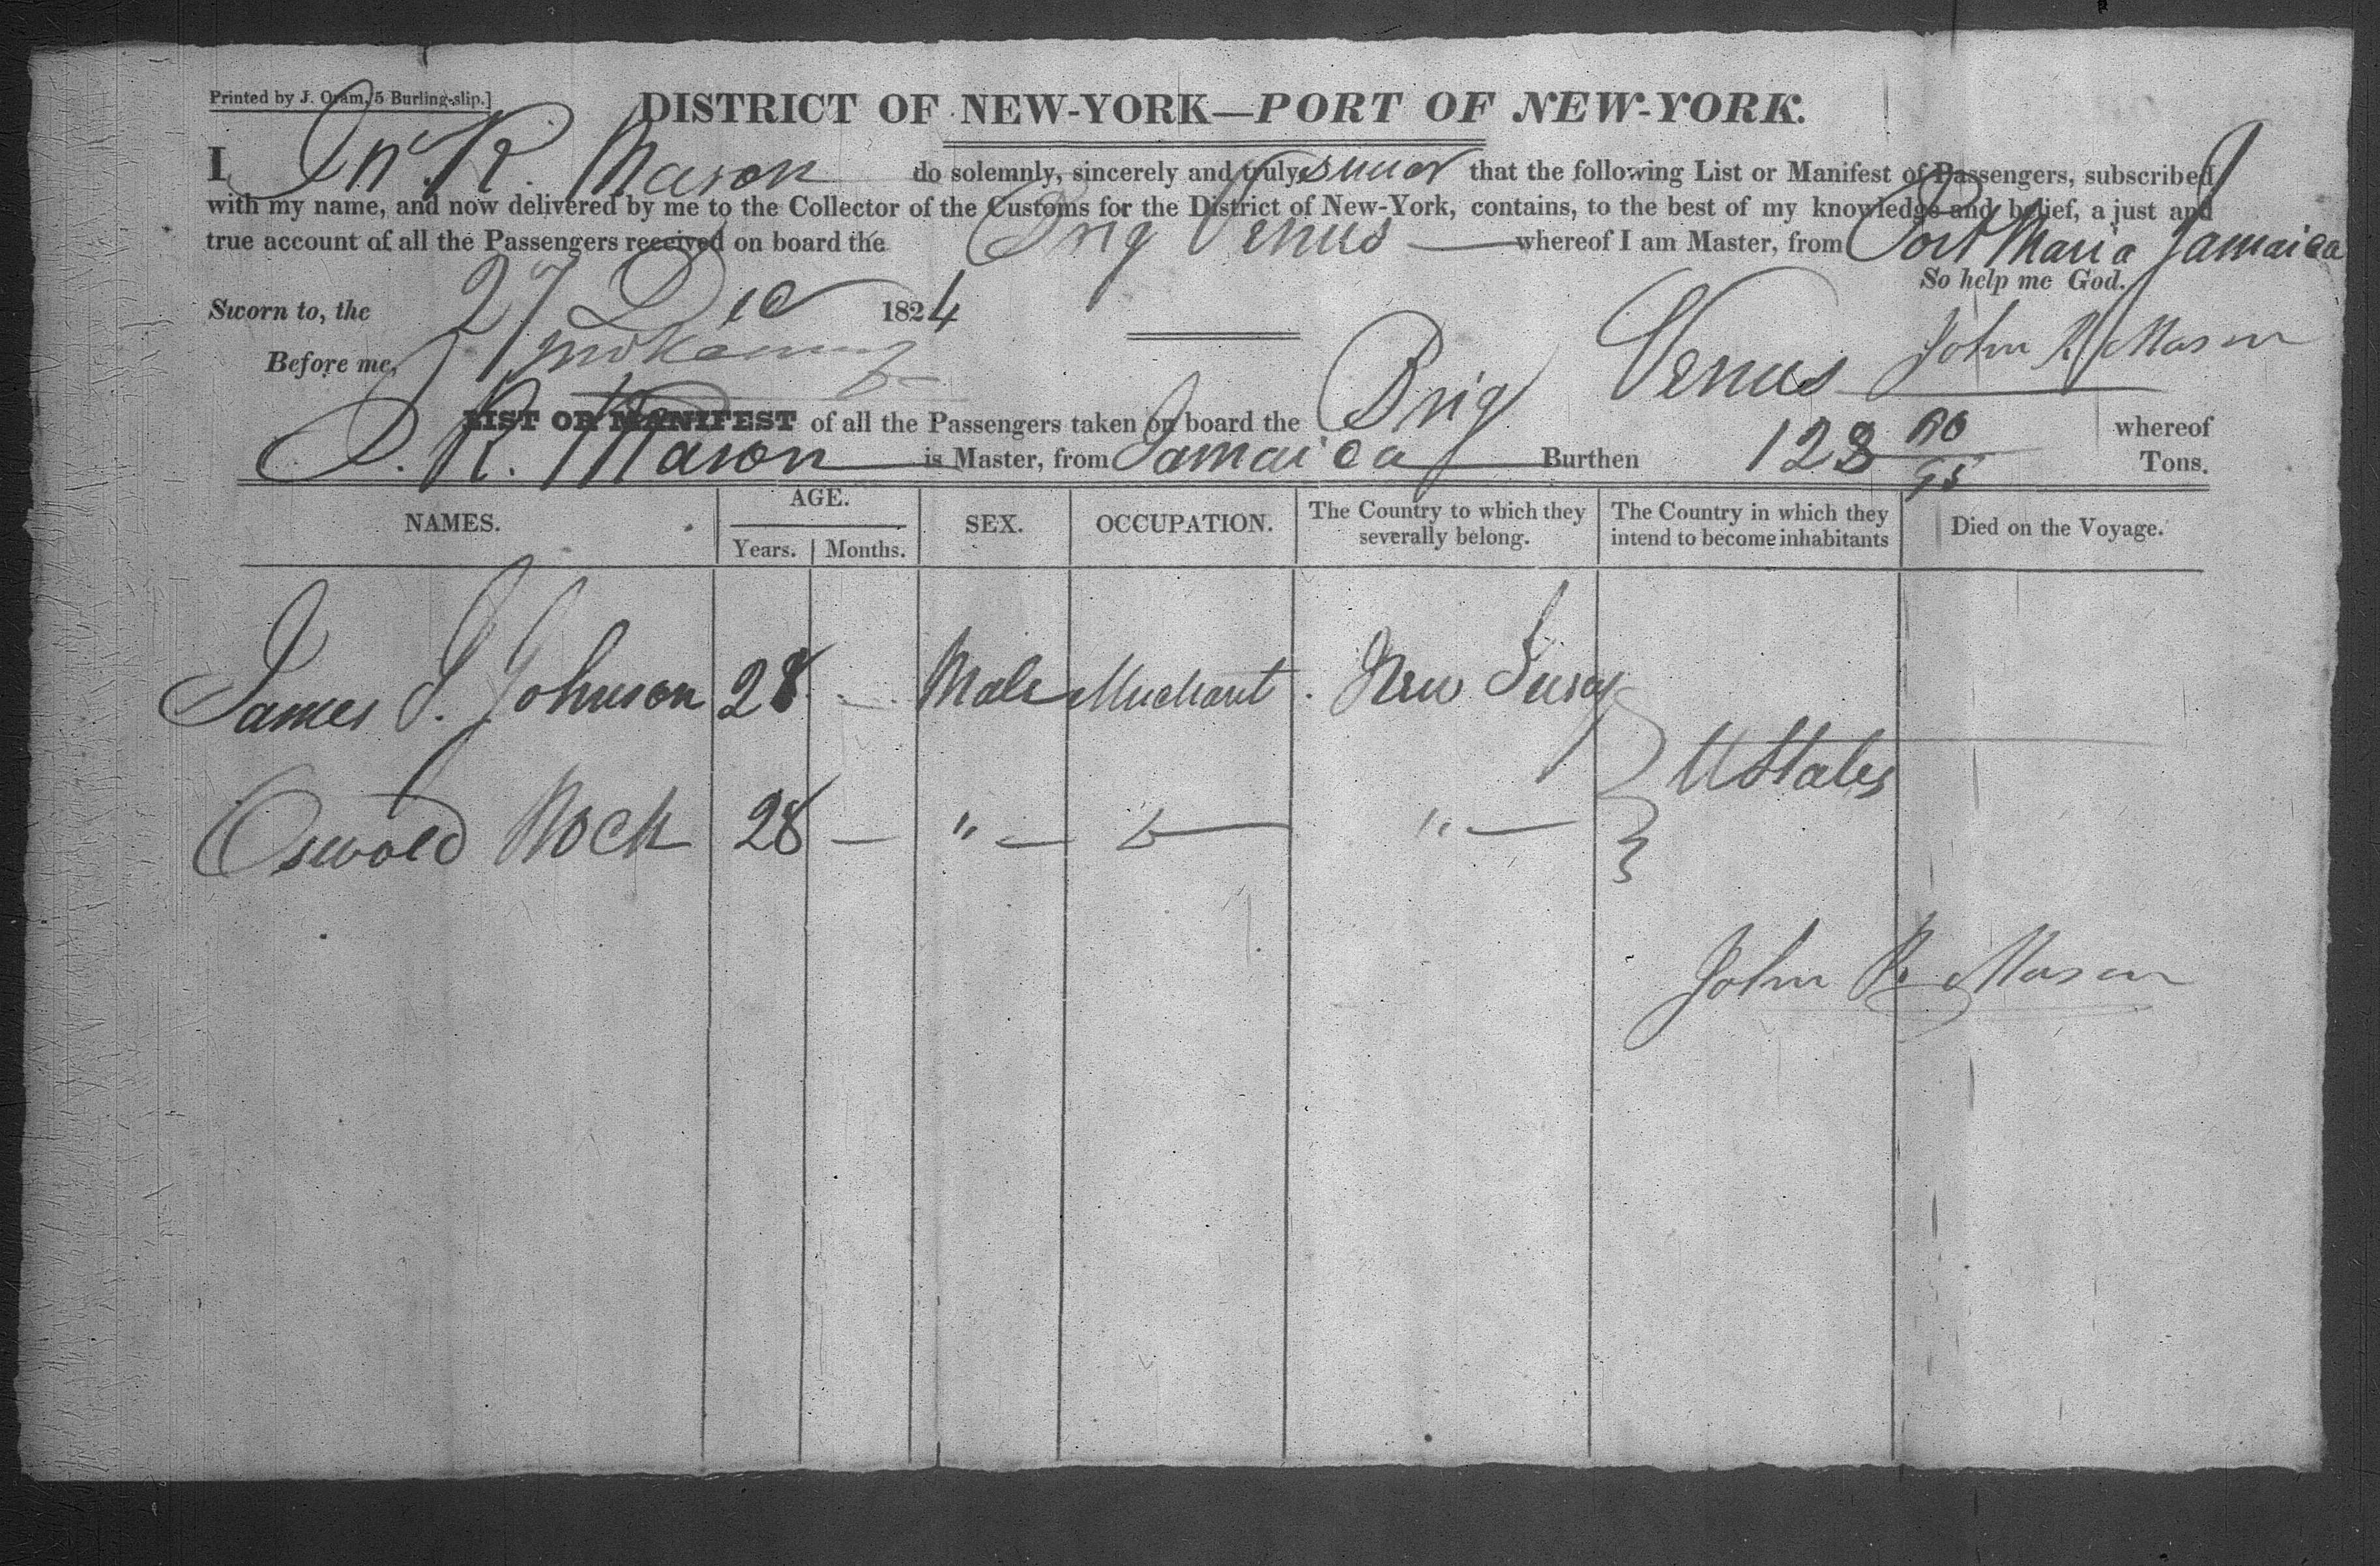 Printed by J. Oram, 5 Burling-slip.]
DISTRICT OF NEW-YORK—PORT OF NEW-YORK.
I Jn° R. Mason do solemnly, sincerely and truly swear that the following List or Manifest of Passengers, subscribed
with my name, and now delivered by me to the Collector of the Customs for the District of New-York, contains, to the best of my knowledge and belief, a just and
true account of all the Passengers received on board the Brig Venus whereof I am Master, from Port Maria Jamaica
So help me God.
Sworn to, the 27 Dec 1824
John R Mason
Before me,
LIST OR MANIFEST of all the Passengers taken on board the Brig Venus whereof
J. R. Mason is Master, from Jamaica Burthen 128 /95 Tons.
NAMES. AGE. SEX. OCCUPATION. The Country to which they severally belong. The Country in which they intend to become inhabitants Died on the Voyage.
Years. Months.
James J. Johnson 28 — Male Merchant . New Jersey
U States
Oswold Nock 28 — " — — " —
John R. Mason